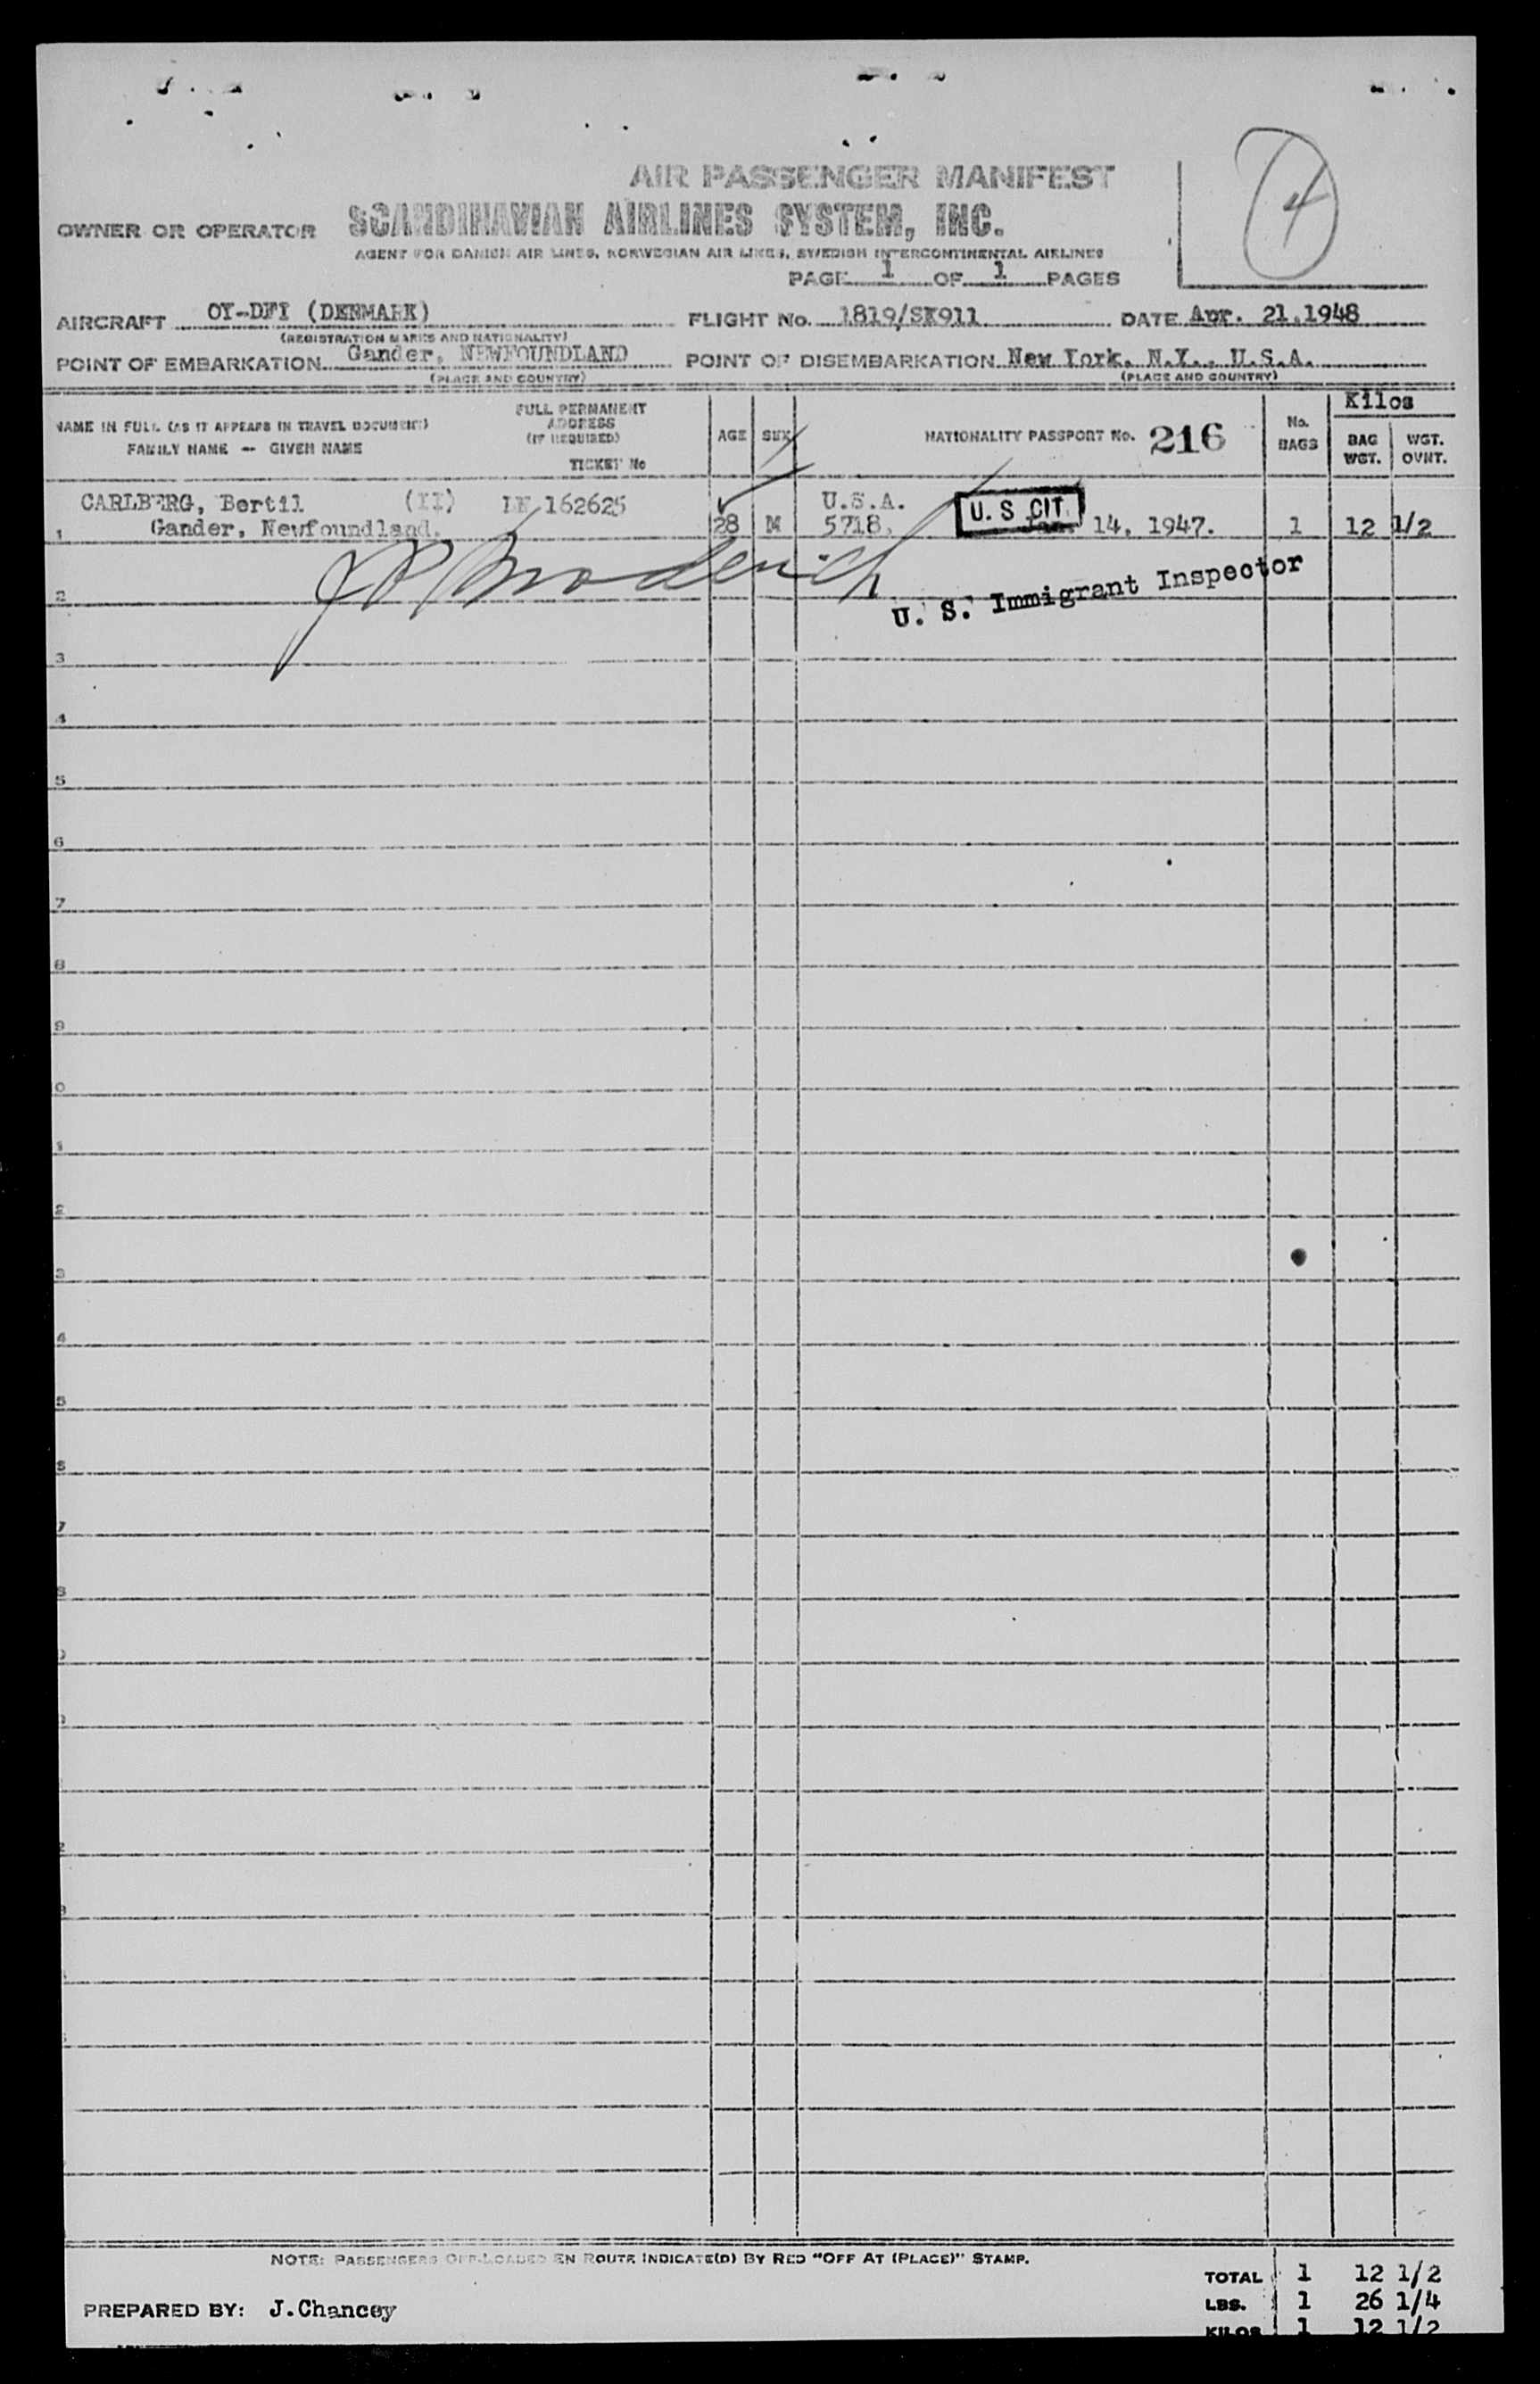 AIR PASSENGER MANIFEST
4
OWNER OR OPERATOR SCANDINAVIAN AIRLINES SYSTEM, INC.
AGENT FOR DANISH AIR LINES, NORWEGIAN AIR LINES, SWEDISH INTERCONTINENTAL AIRLINES
PAGE 1 OF 1 PAGES
AIRCRAFT OY-DFI (DENMARK) FLIGHT No. 1819/SK911 DATE Apr. 21,1948
(REGISTRATION MARKS AND NATIONALITY)
POINT OF EMBARKATION Gander, NEWFOUNDLAND POINT OF DISEMBARKATION New York, N.Y., U.S.A.
(PLACE AND COUNTRY) (PLACE AND COUNTRY)
NAME IN FULL (AS IT APPEARS IN TRAVEL DOCUMENT)
FAMILY NAME -- GIVEN NAME
FULL PERMANENT
ADDRESS
(IF REQUIRED)
TICKET No
AGE SEX NATIONALITY PASSPORT No. 216 No. BAGS
Kilos
BAG WGT. WGT. OVNT.
CARLBERG, Bertil (II) 162625 U.S.A. U. S CIT.
1 Gander, Newfoundland. 28 M 5718, Jan. 14, 1947. 1 12 1/2
J P Broderick
U. S. Immigrant Inspector
2
3
4
5
6
7
8
9
0
1
2
3
4
5
6
7
8
NOTE: PASSENGERS OFF-LOADED EN ROUTE INDICATE(D) BY RED "OFF AT (PLACE)" STAMP.
TOTAL 1 12 1/2
PREPARED BY: J.Chancey
LBS. 1 26 1/4
KILOS 1 12 1/2